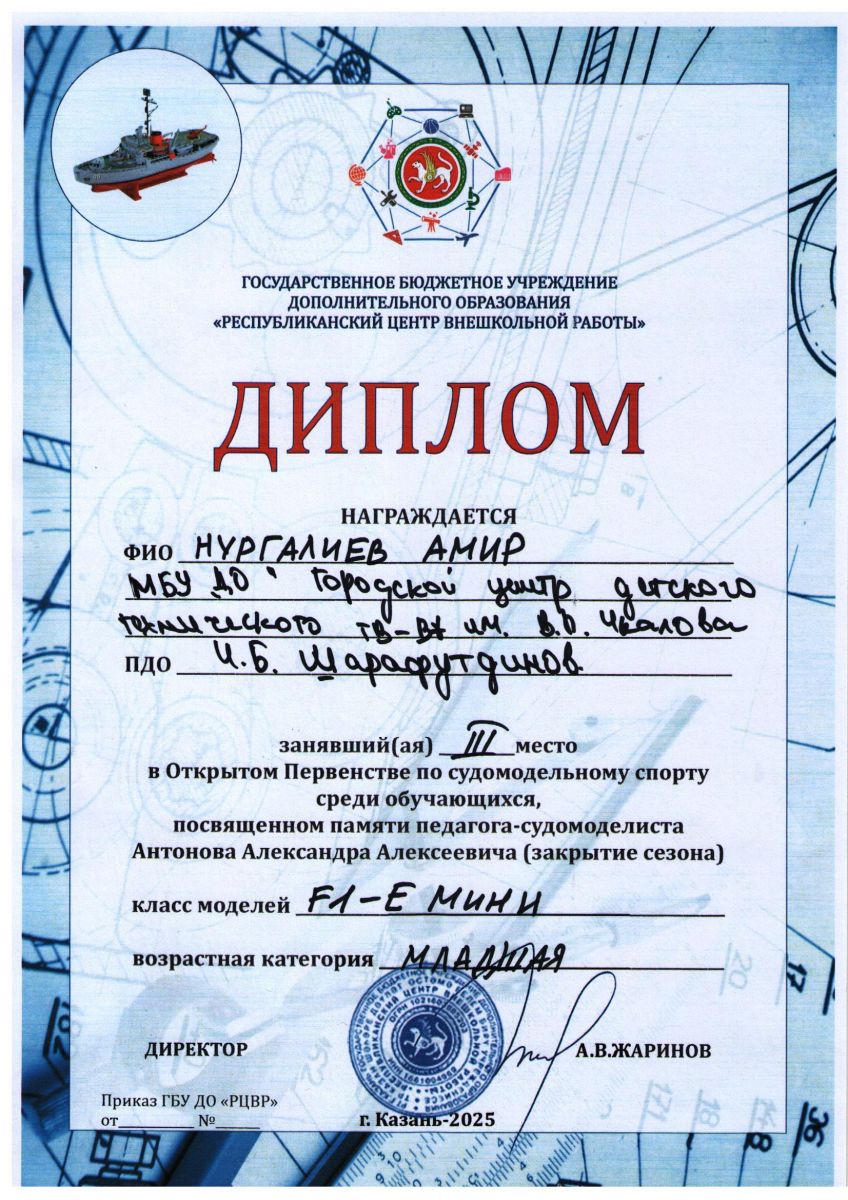 ГОСУДАРСТВЕННОЕ БЮДЖЕТНОЕ УЧРЕЖДЕНИЕ
ДОПОЛНИТЕЛЬНОГО ОБРАЗОВАНИЯ
«РЕСПУБЛИКАНСКИЙ ЦЕНТР ВНЕШКОЛЬНОЙ РАБОТЫ»
ДИПЛОМ
НАГРАЖДАЕТСЯ
ФИО НУРГАЛИЕВ АМИР
МБУ ДО "Городской центр детского
технического тв-ва им. В.П. Чкалова
ПДО И.Б. Шарафутдинов
занявший(ая) III место
в Открытом Первенстве по судомодельному спорту
среди обучающихся,
посвященном памяти педагога-судомоделиста
Антонова Александра Алексеевича (закрытие сезона)
класс моделей F1-E МИНИ
возрастная категория МЛАДШАЯ
ДИРЕКТОР А.В.ЖАРИНОВ
Приказ ГБУ ДО «РЦВР»
от__________ №______
г. Казань-2025
17
20
182
152
171
18
148
36
9 10